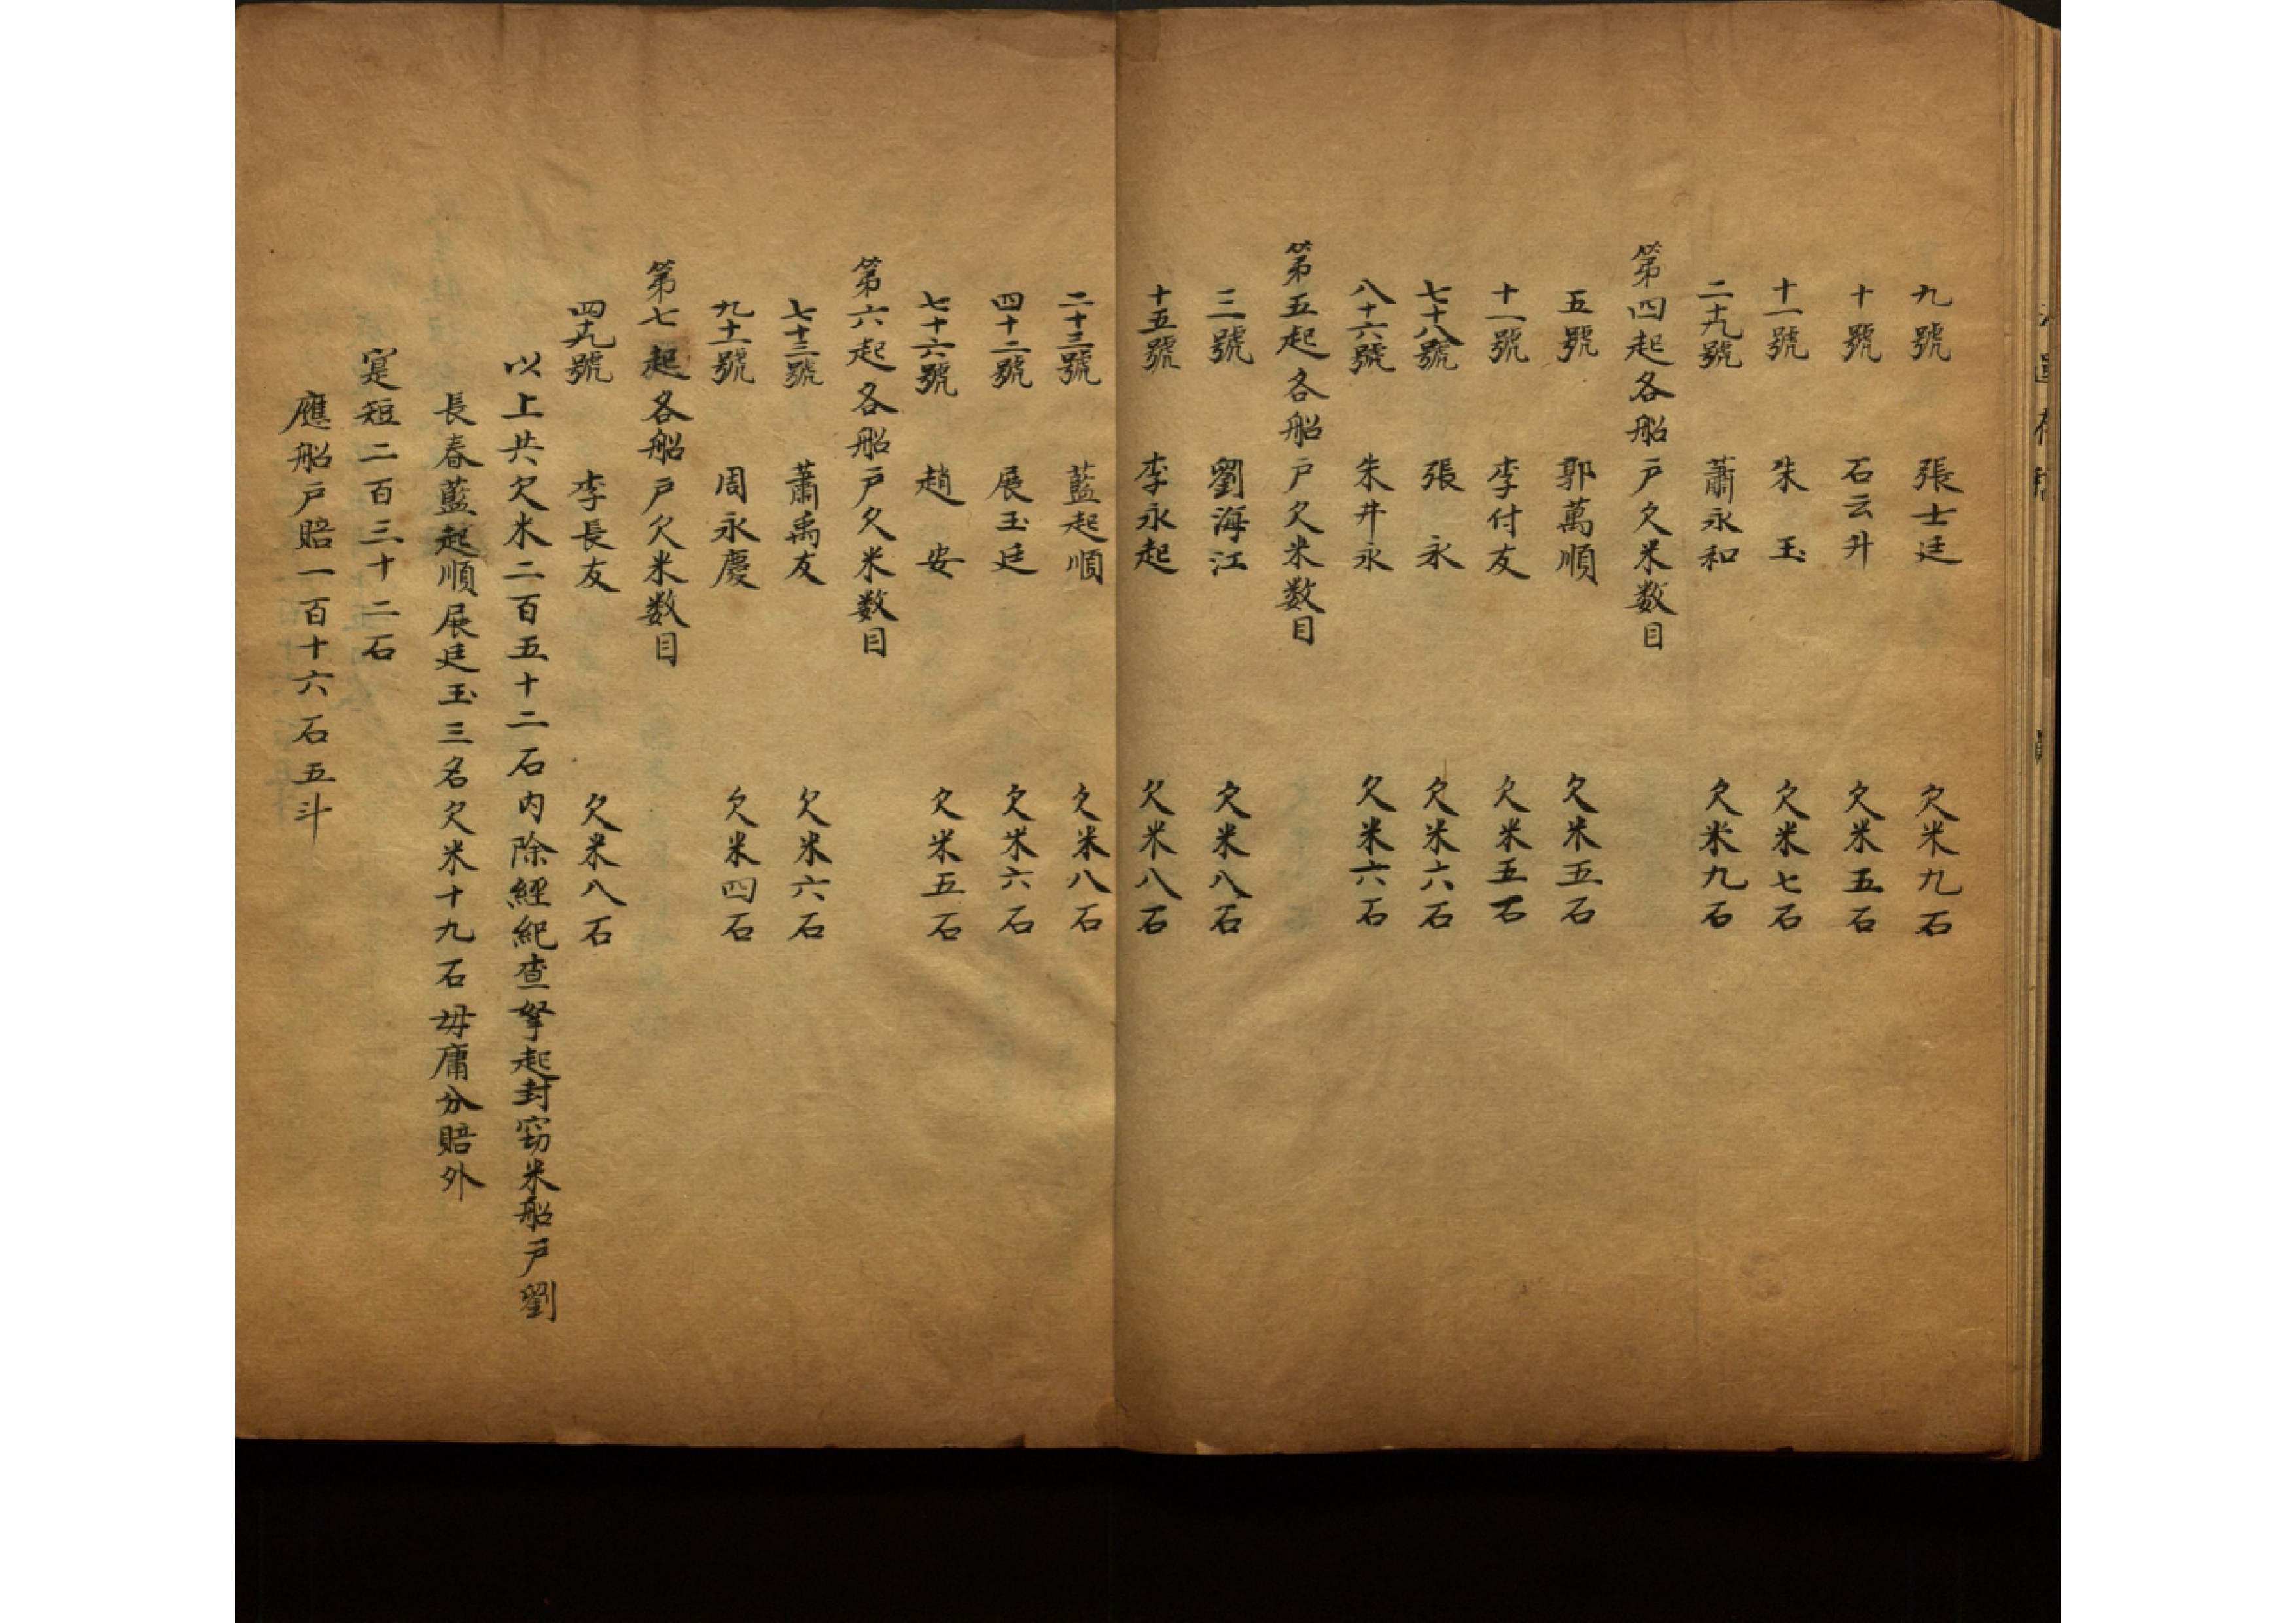 九號 張士廷 欠米九石
十號 石云升 欠米五石
十一號 朱玉 欠米七石
二十九號 蕭永和 欠米九石
第四起各船戶欠米数目
五號 郭萬順 欠米五石
十一號 李付友 欠米五石
七十八號 張永 欠米六石
八十六號 朱井永 欠米六石
第五起各船戶欠米数目
三號 劉海江 欠米八石
十五號 李永起 欠米八石
二十三號 藍起順 欠米八石
四十二號 展玉廷 欠米六石
七十六號 趙安 欠米五石
第六起各船戶欠米数目
七十三號 蕭禹友 欠米六石
九十一號 周永慶 欠米四石
第七起各船戶欠米数目
四十九號 李長友 欠米八石
以上共欠米二百五十二石内除經紀查拏起封窃米船戶劉
長春藍起順展廷玉三名欠米十九石毋庸分賠外
寔短二百三十二石
應船戶賠一百十六石五斗